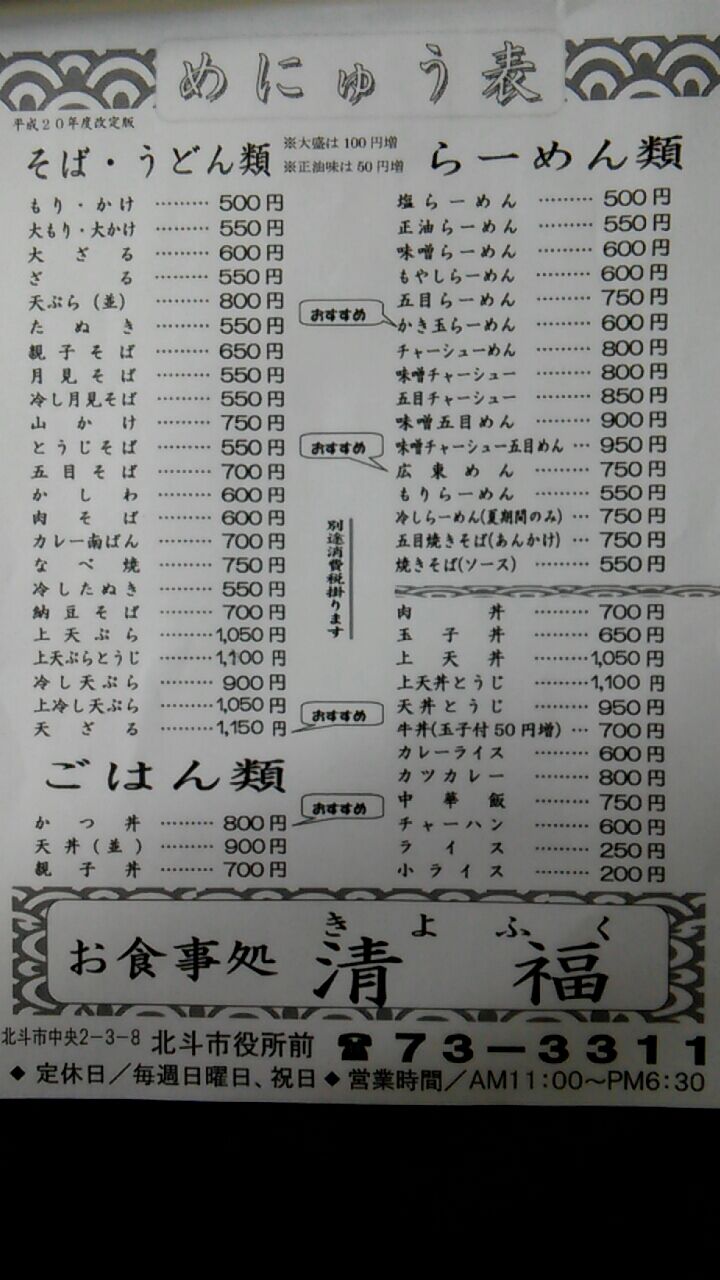 めにゅう表
平成20年度改定版
そば・うどん類
※大盛は100円増
※正油味は50円増
もり・かけ ……… 500円
大もり・大かけ ……… 550円
大ざる ……… 600円
ざる ……… 550円
天ぷら(並) ……… 800円
たぬき ……… 550円
親子そば ……… 650円
月見そば ……… 550円
冷し月見そば ……… 550円
山かけ ……… 750円
とうじそば ……… 550円
五目そば ……… 700円
かしわ ……… 600円
肉そば ……… 600円
カレー南ばん ……… 700円
なべ焼 ……… 750円
冷したぬき ……… 550円
納豆そば ……… 700円
上天ぷら ……… 1,050円
上天ぷらとうじ ……… 1,100円
冷し天ぷら ……… 900円
上冷し天ぷら ……… 1,050円
天ざる ……… 1,150円
おすすめ
ごはん類
かつ丼 ……… 800円
おすすめ
天丼(並) ……… 900円
親子丼 ……… 700円
別途消費税掛ります
らーめん類
塩らーめん ……… 500円
正油らーめん ……… 550円
味噌らーめん ……… 600円
もやしらーめん ……… 600円
五目らーめん ……… 750円
おすすめ
かき玉らーめん ……… 600円
チャーシューめん ……… 800円
味噌チャーシュー ……… 800円
五目チャーシュー ……… 850円
味噌五目めん ……… 900円
味噌チャーシュー五目めん … 950円
おすすめ
広東めん ……… 750円
もりらーめん ……… 550円
冷しらーめん(夏期間のみ) … 750円
五目焼きそば(あんかけ) … 750円
焼きそば(ソース) ……… 550円
肉丼 ……… 700円
玉子丼 ……… 650円
上天丼 ……… 1,050円
上天丼とうじ ……… 1,100円
天丼とうじ ……… 950円
牛丼(玉子付50円増) … 700円
カレーライス ……… 600円
カツカレー ……… 800円
中華飯 ……… 750円
チャーハン ……… 600円
ライス ……… 250円
小ライス ……… 200円
きよふく
お食事処 清福
北斗市中央2-3-8 北斗市役所前 ☎73-3311
◆定休日/毎週日曜日、祝日◆営業時間/AM11:00~PM6:30